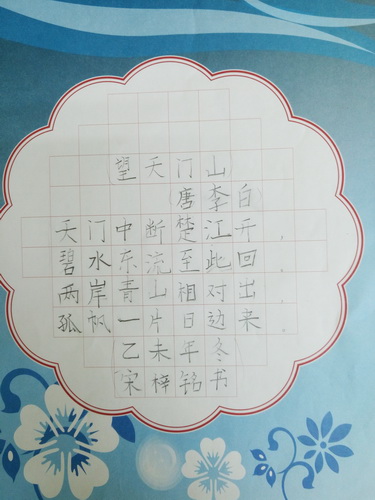 望天门山
唐李白
天门中断楚江开，
碧水东流至此回。
两岸青山相对出，
孤帆一片日边来。
乙未年冬
宋梓铭书